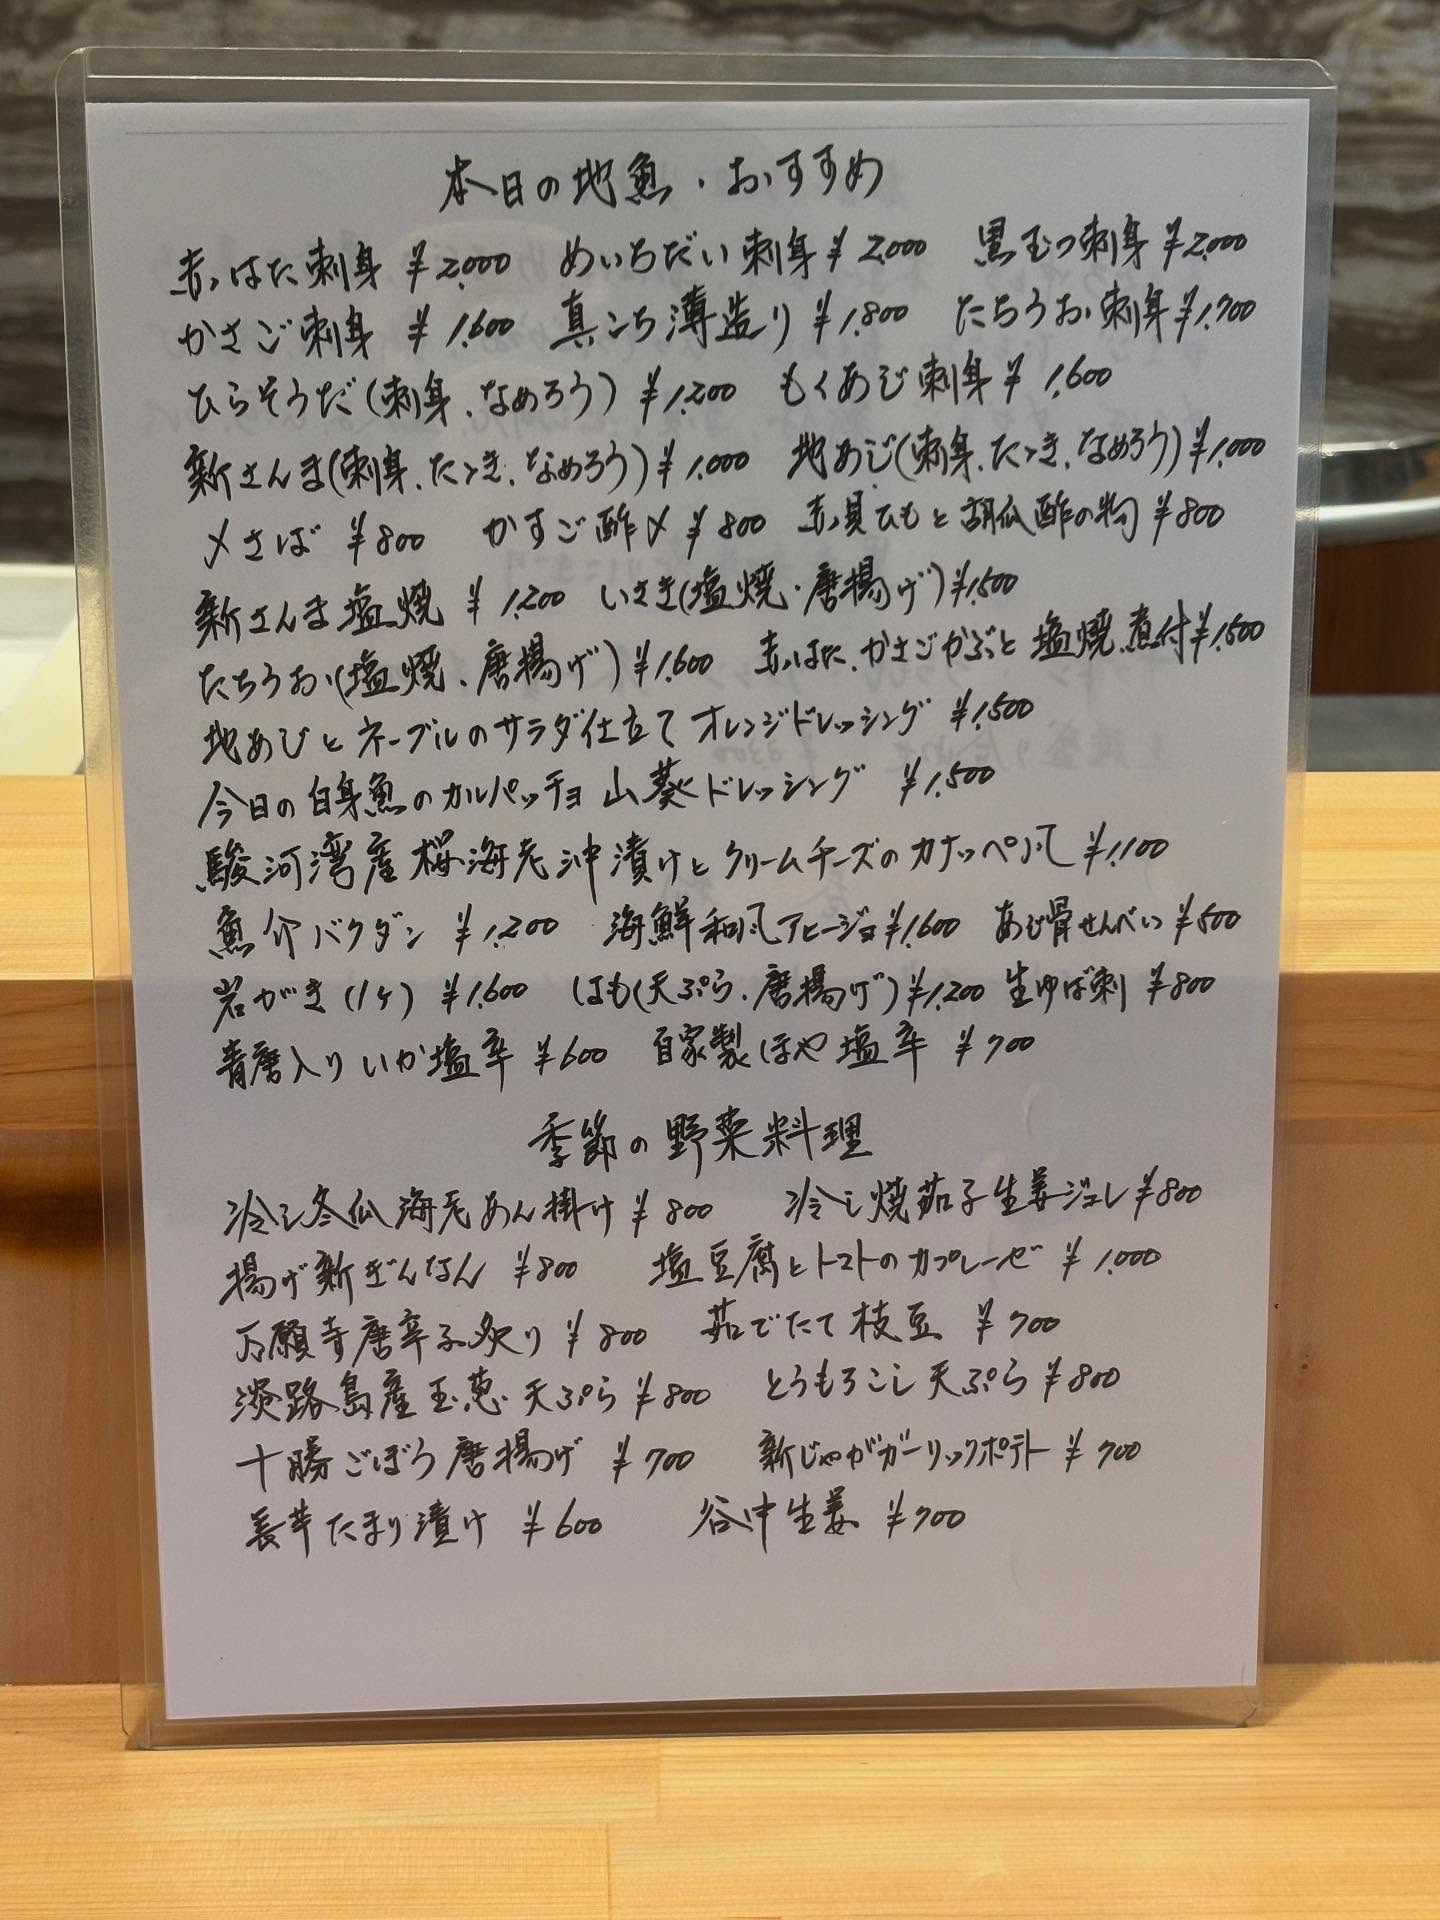 本日の地魚・おすすめ
赤はた刺身 ¥2,000 めいちだい刺身 ¥2,000 黒むつ刺身 ¥2,000
かさご刺身 ¥1,600 真こち薄造り ¥1,800 たちうお刺身 ¥1,700
ひらそうだ(刺身、なめろう) ¥1,200 もくあじ刺身 ¥1,600
新さんま(刺身、たゝき、なめろう) ¥1,000 地あじ(刺身、たゝき、なめろう) ¥1,000
〆さば ¥800 かすご酢〆 ¥800 赤貝ひもと胡瓜酢の物 ¥800
新さんま塩焼 ¥1,200 いさき(塩焼・唐揚げ) ¥1,500
たちうお(塩焼、唐揚げ) ¥1,600 赤はた、かさごかぶと塩焼、煮付 ¥1,500
地あじとネーブルのサラダ仕立て オレンジドレッシング ¥1,500
今日の白身魚のカルパッチョ 山葵ドレッシング ¥1,500
駿河湾産桜海老沖漬けとクリームチーズのカナッペ風 ¥1,100
魚介バクダン ¥1,200 海鮮和風アヒージョ ¥1,600 あじ骨せんべい ¥500
岩がき(1ヶ) ¥1,600 はも(天ぷら、唐揚げ) ¥1,200 生ゆば刺 ¥800
青唐入りいか塩辛 ¥600 自家製ほや塩辛 ¥700
季節の野菜料理
冷し冬瓜海老あん掛け ¥800 冷し焼茄子生姜ジュレ ¥800
揚げ新ぎんなん ¥800 塩豆腐とトマトのカプレーゼ ¥1,000
万願寺唐辛子炙り ¥800 茹でたて枝豆 ¥700
淡路島産玉葱天ぷら ¥800 とうもろこし天ぷら ¥800
十勝ごぼう唐揚げ ¥700 新じゃがガーリックポテト ¥700
長芋たまり漬け ¥600 谷中生姜 ¥700